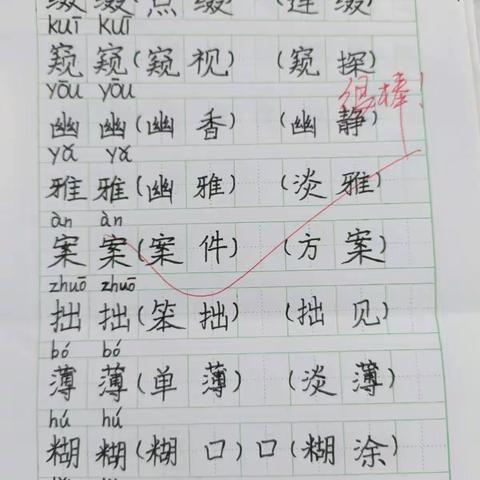 缀 缀(点 缀) (连 缀)
kuī kuī
窥 窥(窥 视) (窥 探)
yōu yōu
幽 幽(幽 香) (幽 静)
很棒!
yǎ yǎ
雅 雅(幽 雅) (淡 雅)
àn àn
案 案(案 件) (方 案)
zhuō zhuō
拙 拙(笨 拙) (拙 见)
bó bó
薄 薄(单 薄) (淡 薄)
hú hú
糊 糊(糊 口)口(糊 涂)